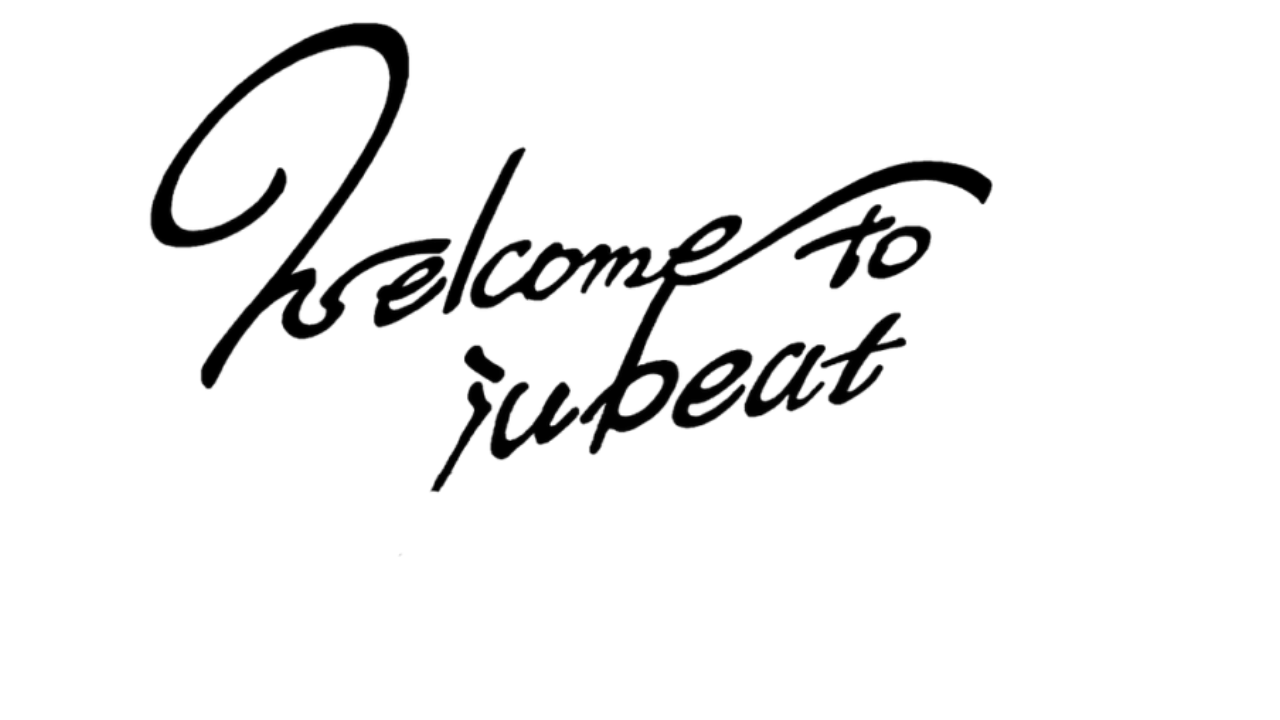 Welcome to
jubeat